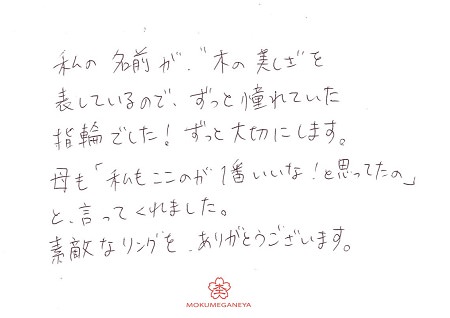 私の名前が、"木の美しさ"を
表しているので、ずっと憧れていた
指輪でした！ずっと大切にします。
母も「私もここのが1番いいな！と思ってたの」
と、言ってくれました。
素敵なリングを、ありがとうございます。
MOKUMEGANEYA